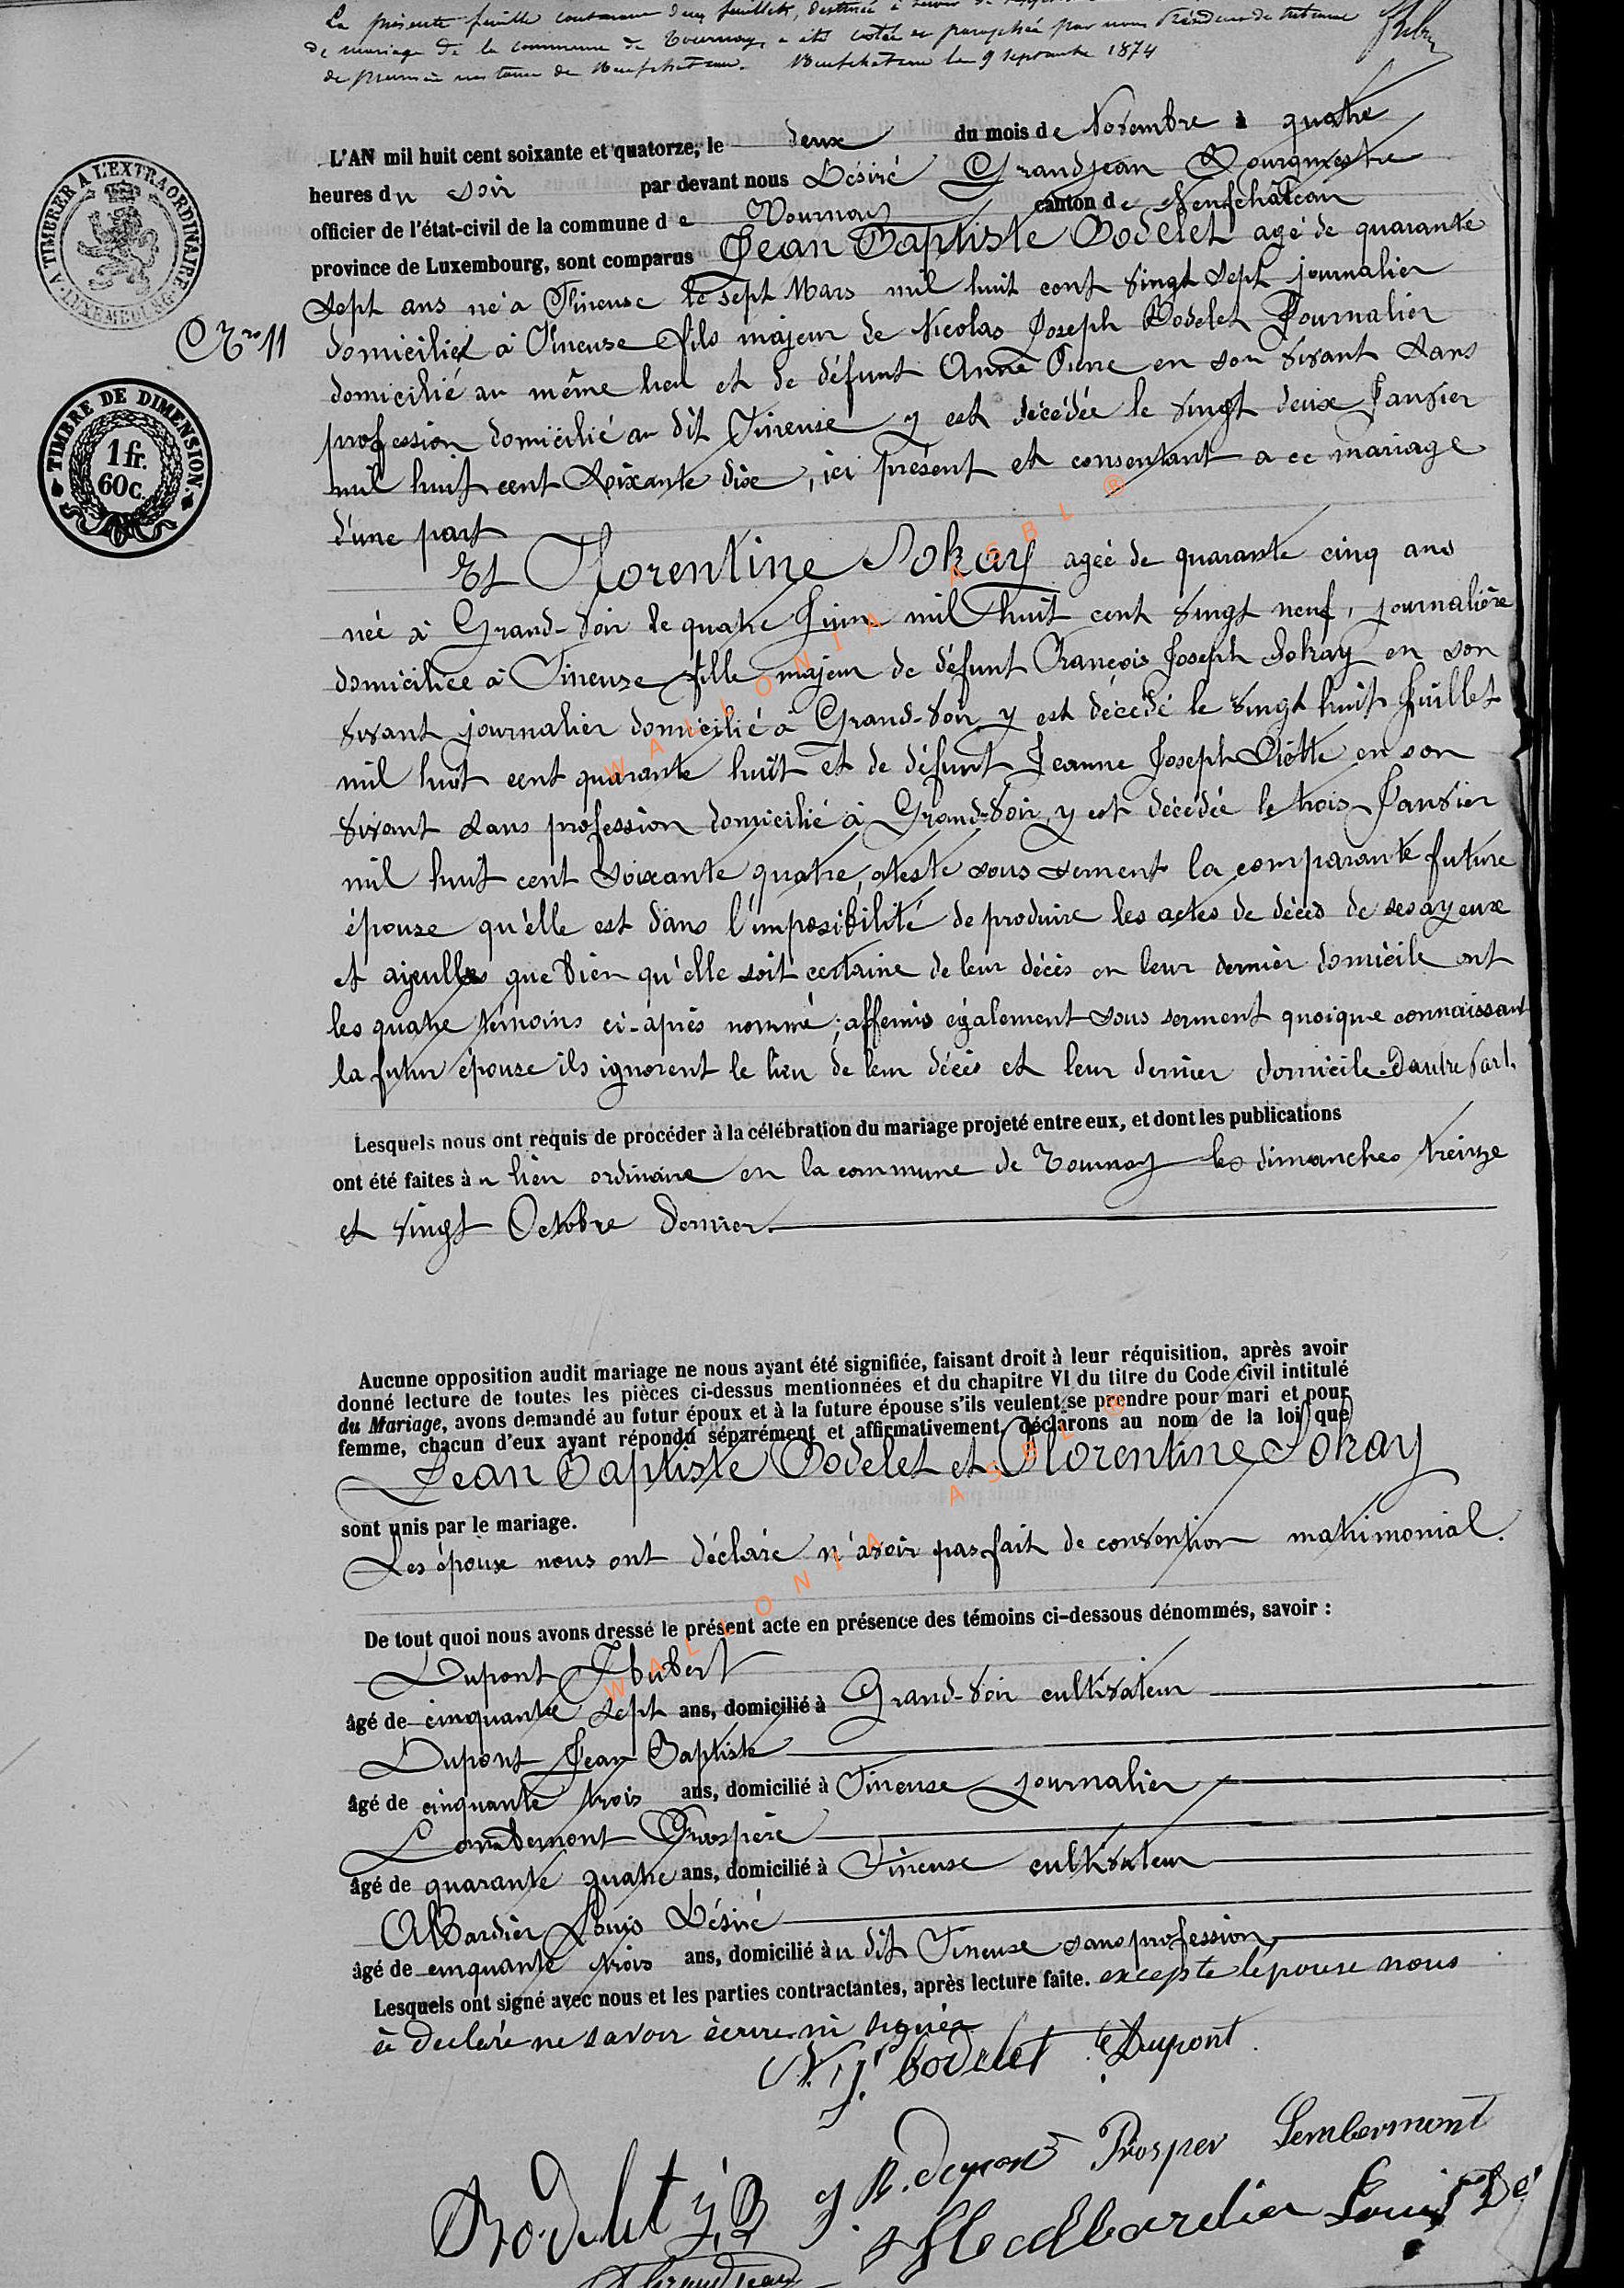 La présente feuille contenant deux feuillets, destinée à servir de
de mariage de la commune de Tournay, a été cotée et paraphée par nous Président du tribunal
de première instance de Neufchâteau. Neufchâteau le 9 septembre 1874
A TIMBRER A L'EXTRAORDINAIRE
A LUXEMBOURG
L'AN mil huit cent soixante et quatorze, le deux du mois de Novembre à quatre
heures du soir par devant nous Désiré Grandjean Bourgmestre
officier de l'état-civil de la commune de Tournay canton de Neufchâteau
province de Luxembourg, sont comparus Jean Baptiste Bodelet agé de quarante
sept ans né a Tineuse le sept Mars mil huit cent vingt sept journalier
Nro 11
domicilié à Tineuse fils majeur de Nicolas Joseph Bodelet Journalier
domicilié au même lieu et de défunt Anne en son vivant sans
profession domicilié au dit Tineuse y est décédée le vingt deux Janvier
mil huit cent soixante dix, ici présent et consentant a ce mariage
d'une part
TIMBRE DE DIMENSION
1 fr.
60 c.
Et Florentine Sokay agée de quarante cinq ans
née à Grand-Voir le quatre Juin mil huit cent vingt neuf, journalière
domiciliée à Tineuse fille majeur de défunt François Joseph Sokay en son
vivant journalier domicilié à Grand-Voir y est décédé le vingt huit Juillet
mil huit cent quarante huit et de défunt Jeanne Joseph en son
vivant sans profession domicilié à Grand-Voir, y est décédée le trois Janvier
mil huit cent soixante quatre, ateste sous serment la comparante future
épouse qu'elle est dans l'imposibilité de produire les actes de décès de ses ayeux
et ayeulles que bien qu'elle soit certaine de leur décès on leur dernier domicile ont
les quatre témoins ci-après nommé; affermis également sous serment quoique connaissant
la futur épouse ils ignorent le lieu de leur décès et leur dernier domicile. D'autre Part.
Lesquels nous ont requis de procéder à la célébration du mariage projeté entre eux, et dont les publications
ont été faites au lieu ordinaire en la commune de Tournay les dimanches treize
et vingt Octobre dernier.
Aucune opposition audit mariage ne nous ayant été signifiée, faisant droit à leur réquisition, après avoir
donné lecture de toutes les pièces ci-dessus mentionnées et du chapitre VI du titre du Code civil intitulé
du Mariage, avons demandé au futur époux et à la future épouse s'ils veulent se prendre pour mari et pour
femme, chacun d'eux ayant répondu séparément et affirmativement, déclarons au nom de la loi que
Jean Baptiste Bodelet et Florentine Sokay
sont unis par le mariage.
Les époux nous ont déclaré n'avoir pas fait de convention matrimonial.
De tout quoi nous avons dressé le présent acte en présence des témoins ci-dessous dénommés, savoir :
Dupont Hubert
âgé de cinquante sept ans, domicilié à Grand-Voir cultivateur
Dupont Jean Baptiste
âgé de cinquante trois ans, domicilié à Tineuse journalier
Lambermont Prospère
âgé de quarante quatre ans, domicilié à Tineuse cultivateur
Albardier Louis Désiré
âgé de cinquante trois ans, domicilié au dit Tineuse sans profession,
Lesquels ont signé avec nous et les parties contractantes, après lecture faite. excepte lepouse nous
à declaré ne savoir écrire ni signér
N. J. Bodelet Dupont
J B. Dupont Prosper Lembermont
Bodelet J B Albardier Louis Dé
Grandjean
WALLONIA ASBL ®
WALLONIA ASBL ®